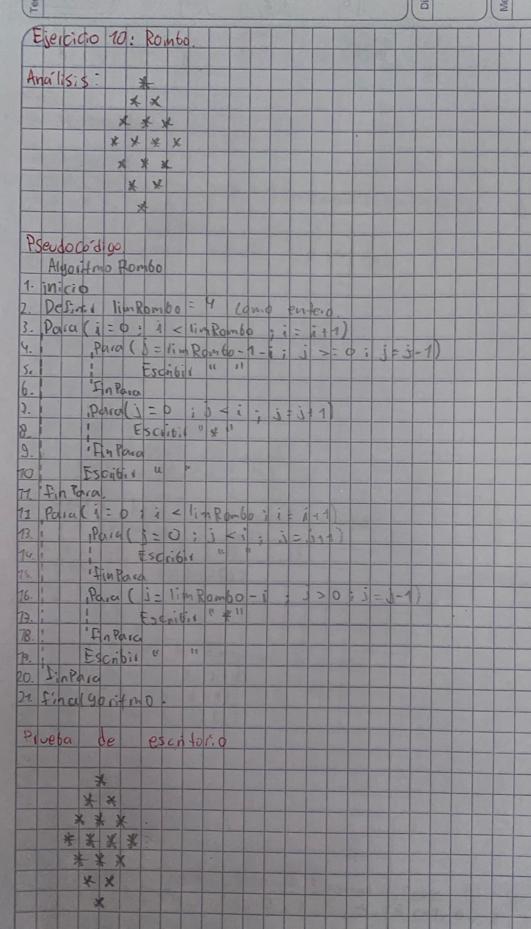 Ejercicio 10: Rombo.
Análisis:
*
* *
* * *
* * * *
* * *
* *
*
Pseudocódigo
Algoritmo Rombo
1. inicio
2. Definir limRombo = 4 como entero.
3. Para ( i = 0 ; i < limRombo ; i = i+1 )
4. Para ( j = limRombo-1-i ; j >= 0 ; j = j-1 )
5. Escribir " "
6. FinPara
7. Para ( j = 0 ; j < i ; j = j+1 )
8. Escribir "*"
9. FinPara
10 Escribir " "
11. finPara.
11 Para ( i = 0 ; i < limRombo ; i = i+1 )
13. Para ( j = 0 ; j < i ; j = j+1 )
14. Escribir " "
15. finPara
16. Para ( j = limRombo-i ; j > 0 ; j = j-1 )
17. Escribir "*"
18. FinPara
19. Escribir " "
20. finPara
21. finalgoritmo.
Prueba de escritorio
*
* *
* * *
* * * *
* * *
* *
*